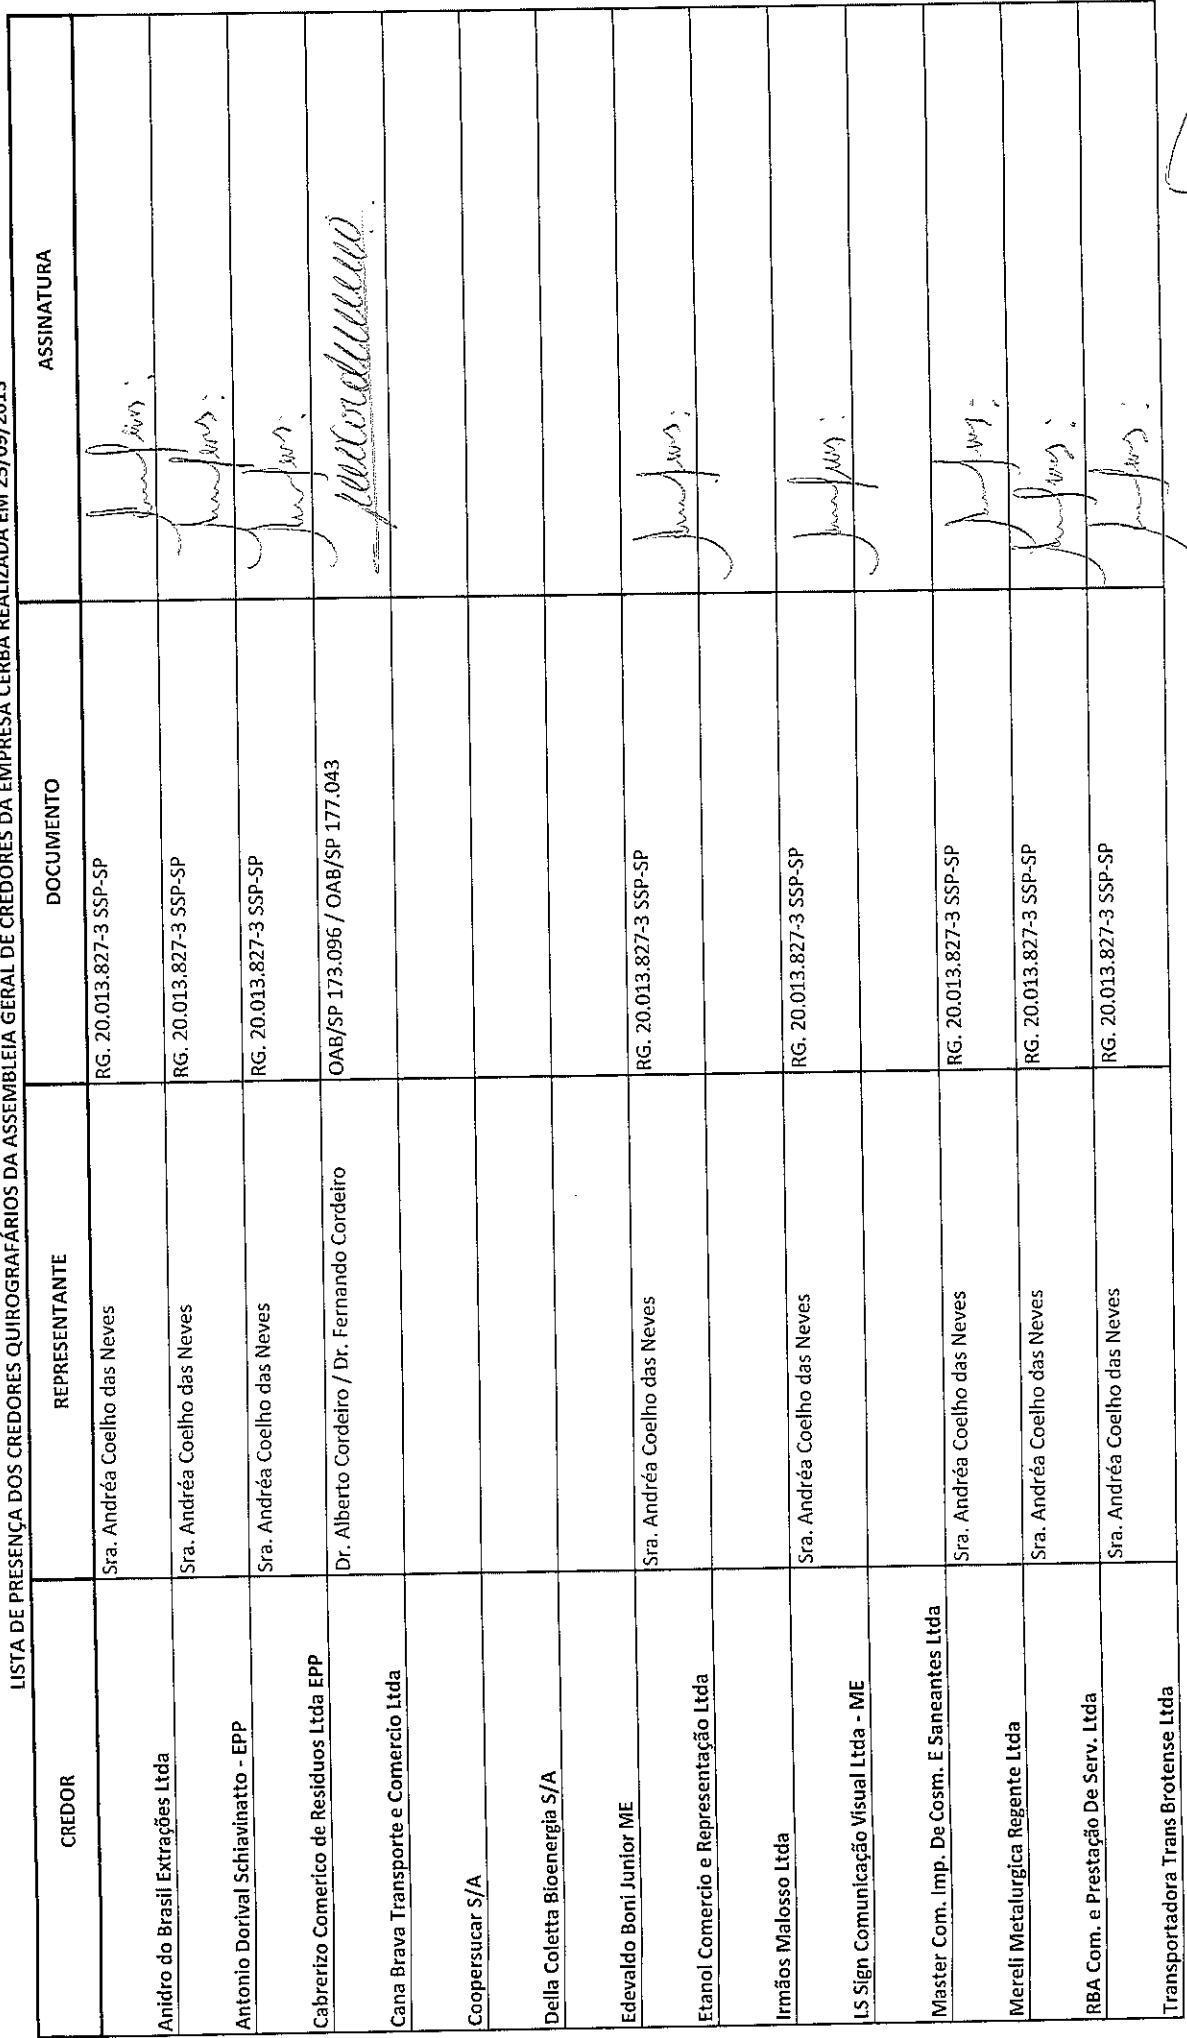 LISTA DE PRESENÇA DOS CREDORES QUIROGRAFÁRIOS DA ASSEMBLEIA GERAL DE CREDORES DA EMPRESA CERBA REALIZADA EM
CREDOR REPRESENTANTE DOCUMENTO ASSINATURA
Anidro do Brasil Extrações Ltda Sra. Andréa Coelho das Neves RG. 20.013.827-3 SSP-SP
Antonio Dorival Schiavinatto - EPP Sra. Andréa Coelho das Neves RG. 20.013.827-3 SSP-SP
Cabrerizo Comerico de Residuos Ltda EPP Sra. Andréa Coelho das Neves RG. 20.013.827-3 SSP-SP
Cana Brava Transporte e Comercio Ltda Dr. Alberto Cordeiro / Dr. Fernando Cordeiro OAB/SP 173.096 / OAB/SP 177.043
Coopersucar S/A
Della Coletta Bioenergia S/A
Edevaldo Boni Junior ME
Etanol Comercio e Representação Ltda Sra. Andréa Coelho das Neves RG. 20.013.827-3 SSP-SP
Irmãos Malosso Ltda
LS Sign Comunicação Visual Ltda - ME Sra. Andréa Coelho das Neves RG. 20.013.827-3 SSP-SP
Master Com. Imp. De Cosm. E Saneantes Ltda
Mereli Metalurgica Regente Ltda Sra. Andréa Coelho das Neves RG. 20.013.827-3 SSP-SP
RBA Com. e Prestação De Serv. Ltda Sra. Andréa Coelho das Neves RG. 20.013.827-3 SSP-SP
Transportadora Trans Brotense Ltda Sra. Andréa Coelho das Neves RG. 20.013.827-3 SSP-SP